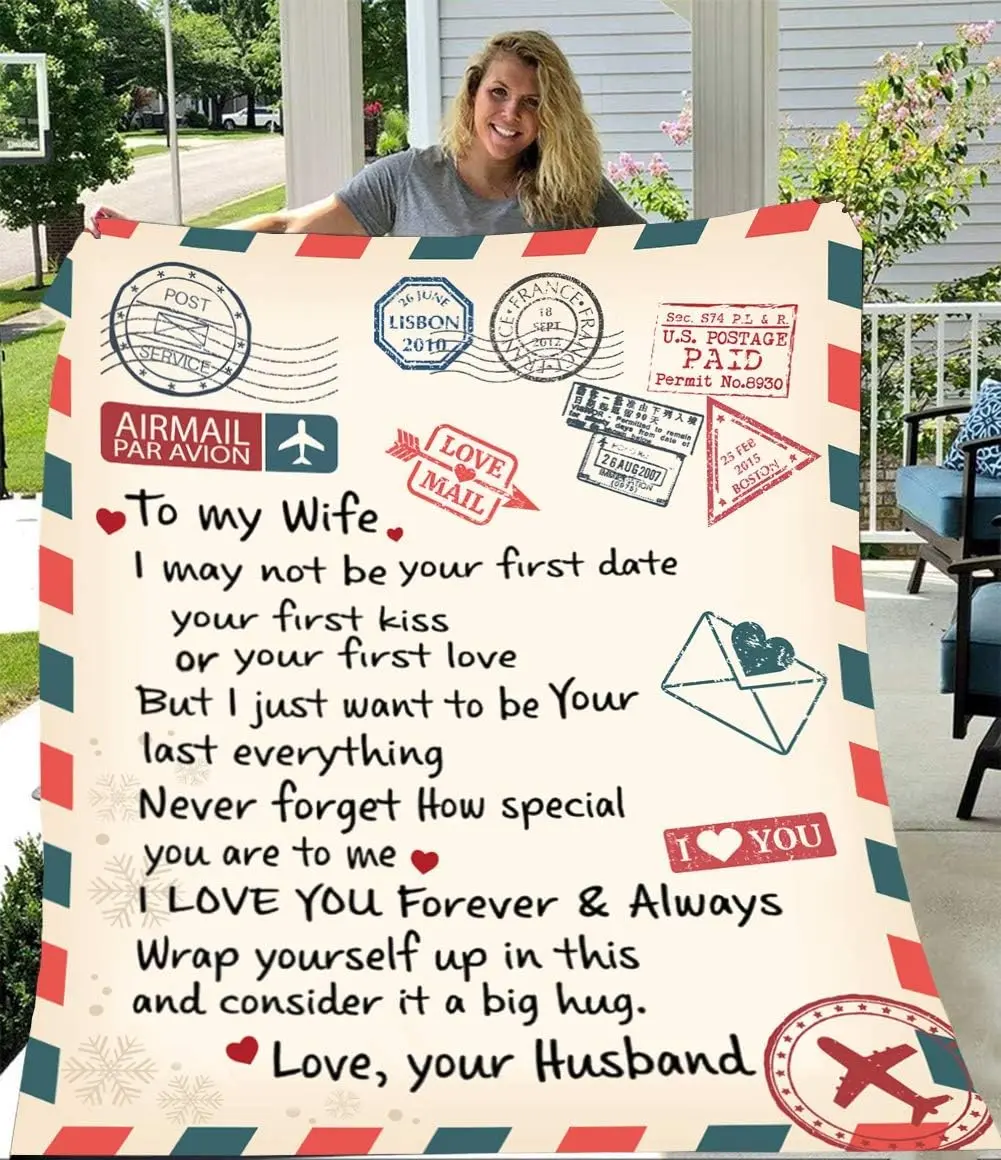 POST
SERVICE
26 JUNE
LISBON
2010
FRANCE · FRANCE · FRANCE
18
SEPT
2012
Sec. S74 P.L & R.
U.S. POSTAGE
PAID
Permit No.8930
AIRMAIL
PAR AVION
LOVE
MAIL
VISITOR Permitted to remain
26AUG2007
25 FEB
2015
BOSTON
To my Wife
I may not be your first date
your first kiss
or your first love
But I just want to be Your
last everything
Never forget How special
you are to me
I YOU
I LOVE YOU Forever & Always
Wrap yourself up in this
and consider it a big hug.
Love, your Husband